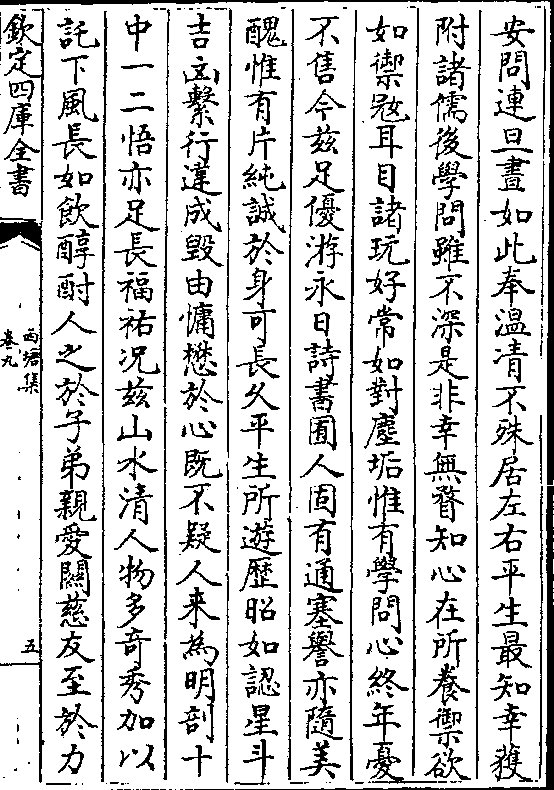 安問連旦晝如此奉溫凊不殊居左右平生最知幸獲
附諸儒後學問雖不深是非幸無瞀知心在所養禦欲
如禦冦耳目諸玩好常如對塵垢惟有學問心終年憂
不售今兹足優游永日詩書囿人固有通塞譽亦隨美
醜惟有片純誠於身可長久平生所遊歴昭如認星斗
吉凶繫行違成毀由慵懋於心既不疑人来為明剖十
中一二悟亦足長福祐况兹山水清人物多竒秀加以
託下風長如飲醇酎人之於子弟親愛關慈友至於力
欽定四庫全書
西塘集
卷九
五